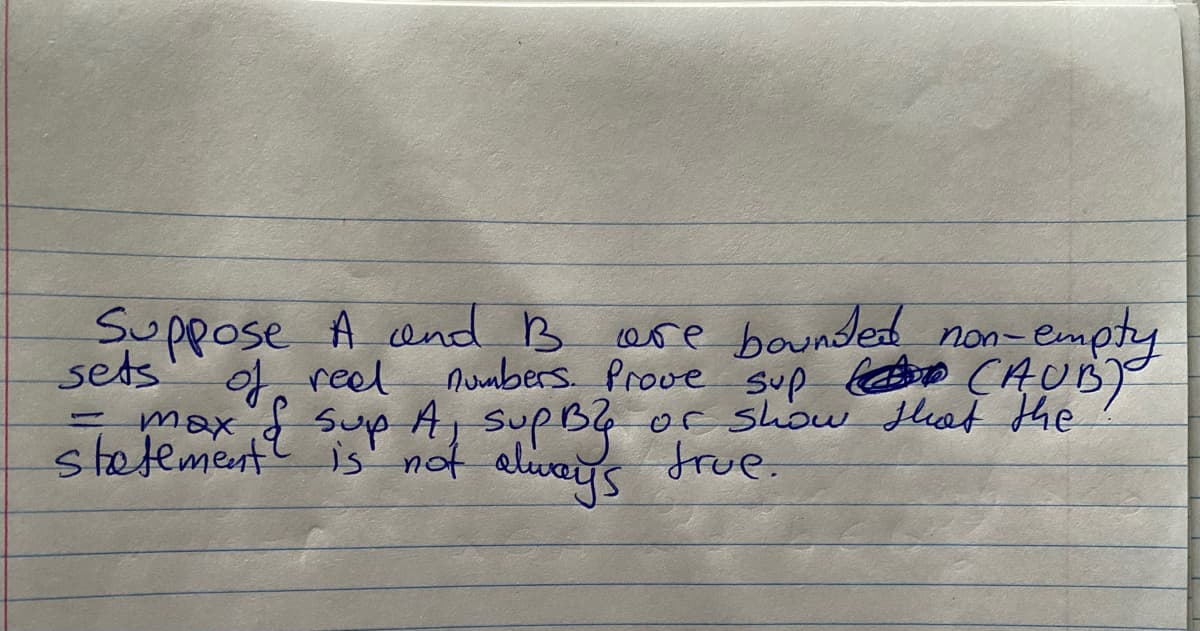 Suppose A and B are bounded non-empty
sets of real numbers. Prove sup (A∪B)
= max { sup A, sup B} or show that the
statement is not always true.